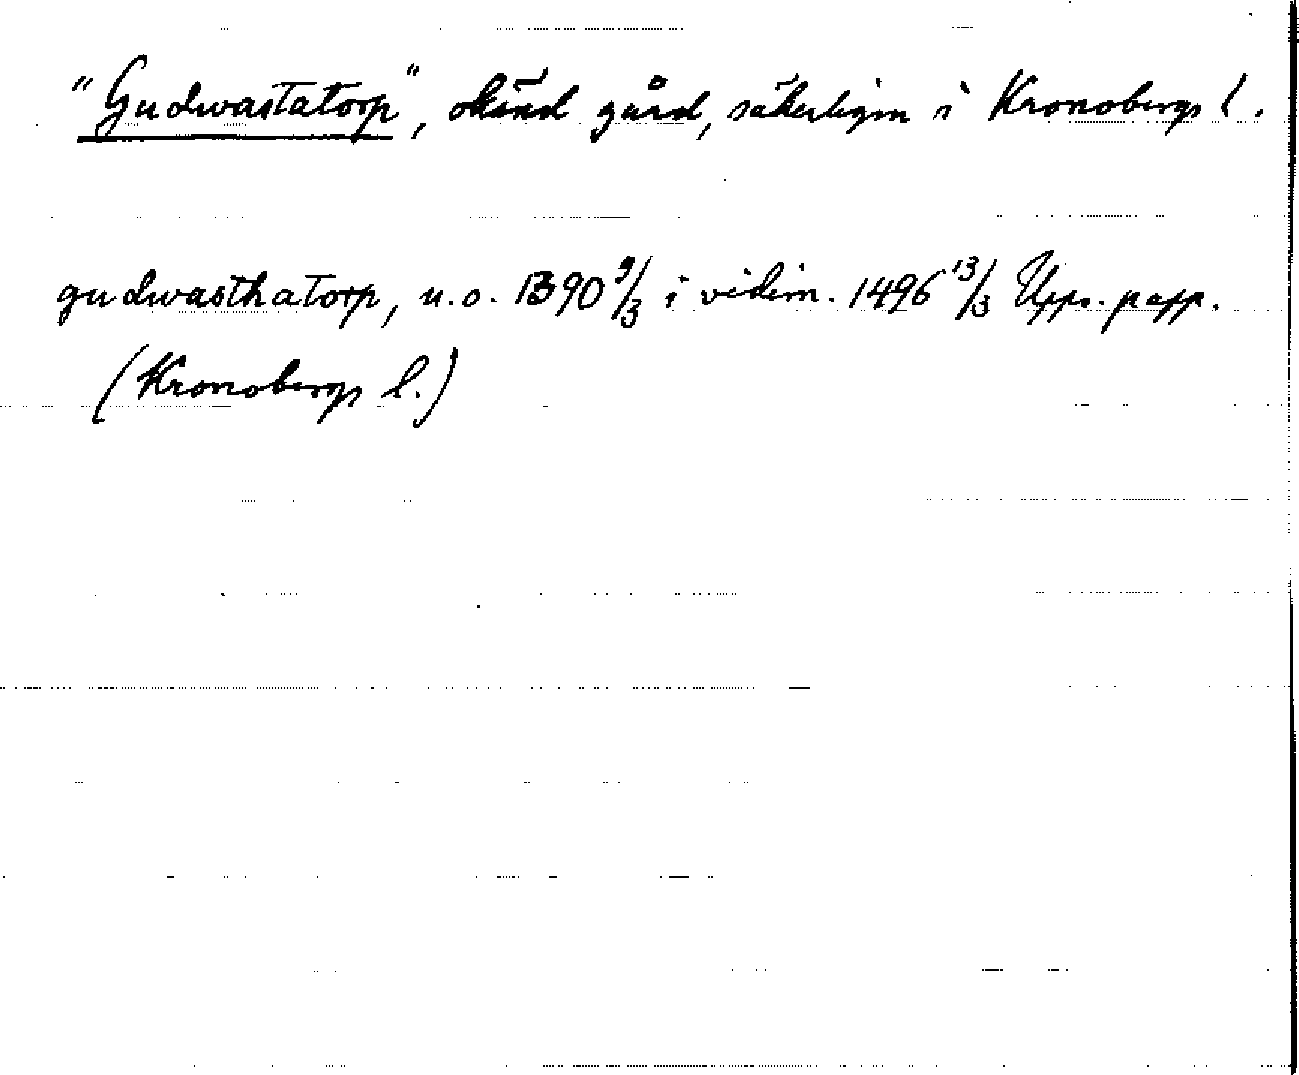 "Gudwastatorp", okänd gård, säkerligen i Kronobergs l.
gudwasthatorp, u.o. 1390 9/3 i vidim. 1496 13/3 Upps. papp.
(Kronobergs l.)